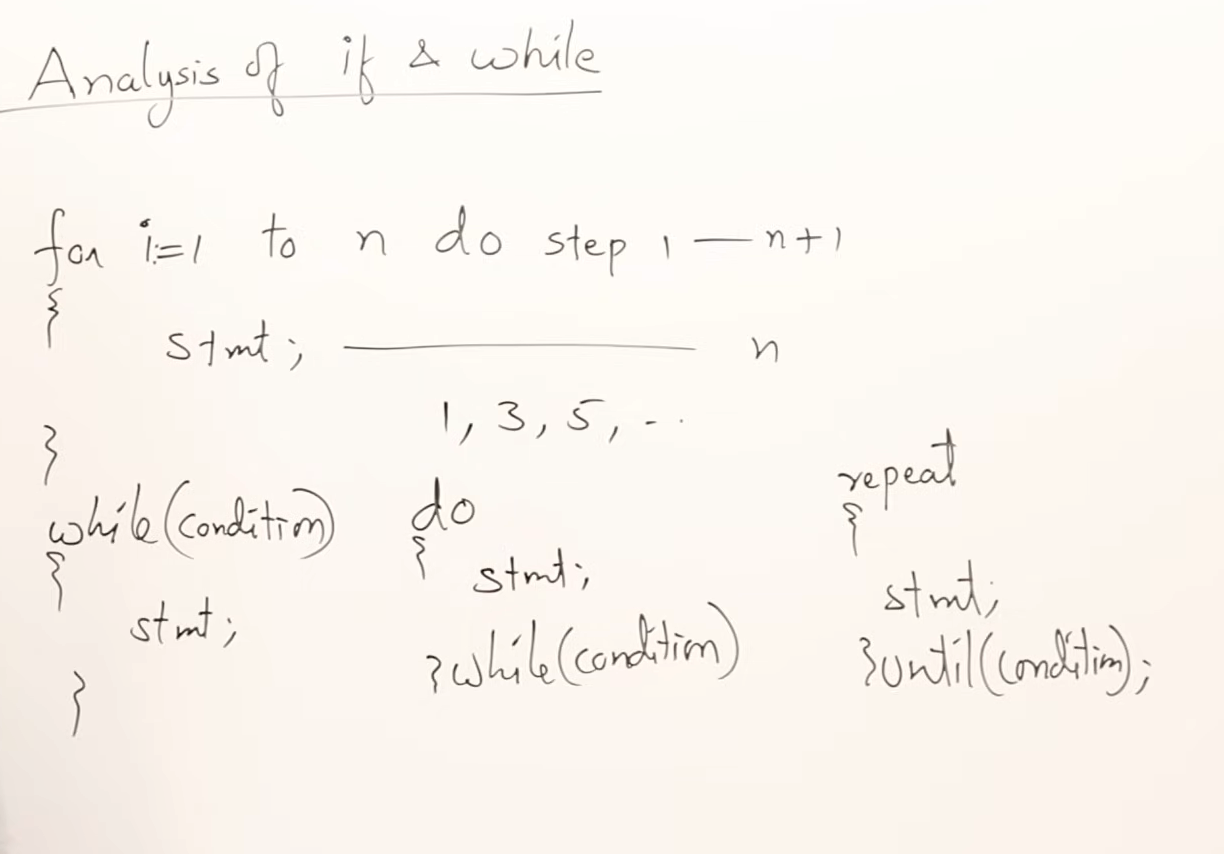 Analysis of if & while
for i=1 to n do step 1 — n+1
{
stmt; ——— n
1, 3, 5, ...
}
while(condition)
{
stmt;
}
do
{
stmt;
}while(condition)
repeat
{
stmt;
}until(condition);